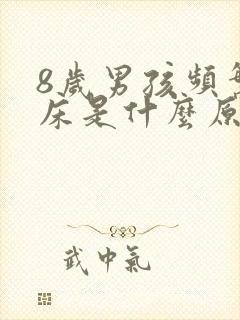 8歲男孩頻繁
床是什麼原
武中氣